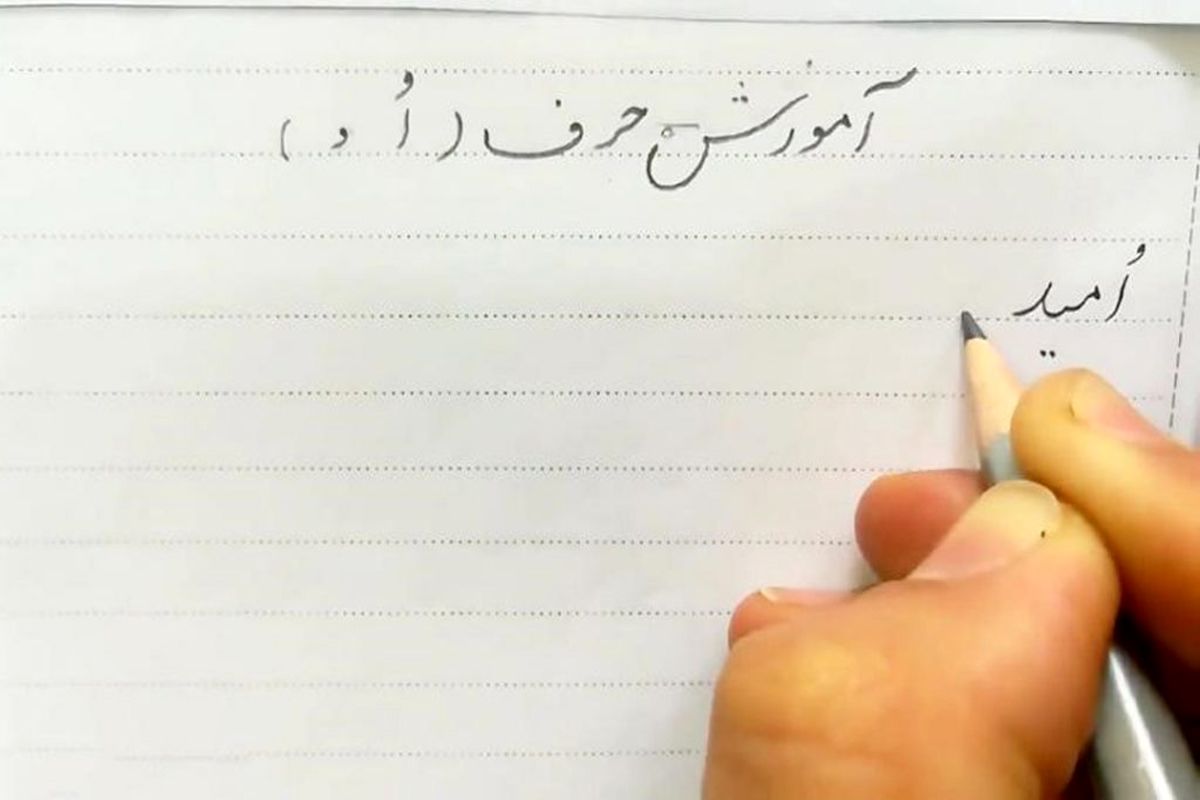 آموزش حرف ( اُ و )
اُمید